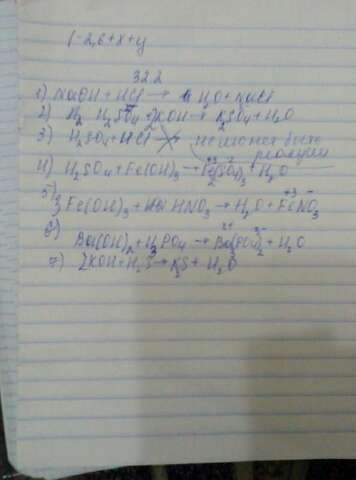 (-2,6+x+y
322
1) NaOH + HCl → H2O + NaCl
2) H2SO4 + 2KOH → K2SO4 + H2O
3) H2SO4 + HCl → не может быть
реакции
4) H2SO4 + Fe(OH)3 → Fe2(SO4)3 + H2O
5) Fe(OH)3 + HNO3 → H2O + FeNO3
6) Ba(OH)2 + H3PO4 → Ba3(PO4)2 + H2O
7) 2KOH + H2S → K2S + H2O